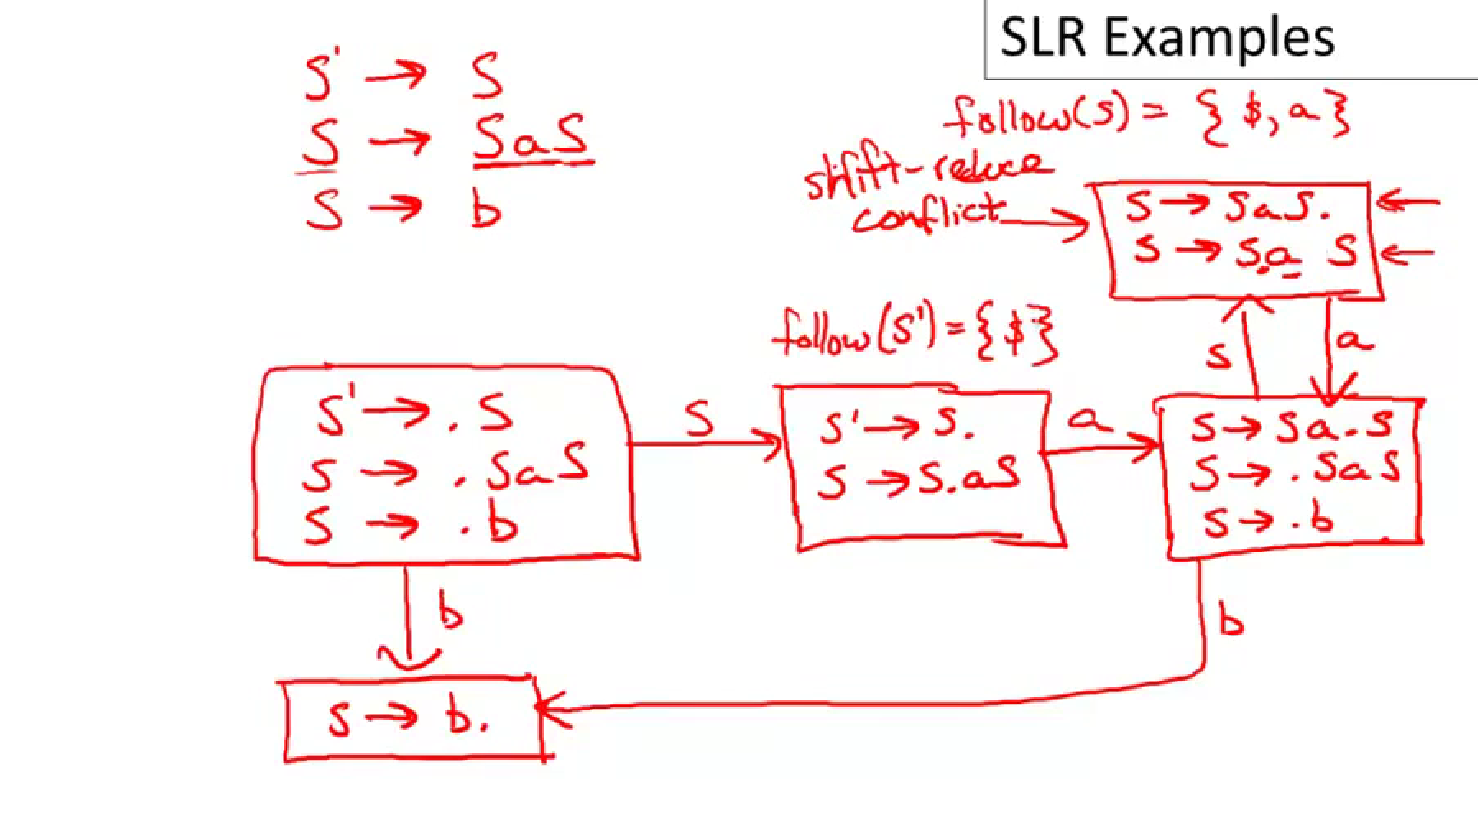 SLR Examples
S' → S
S → SaS
S → b
follow(S) = { $, a }
shift-reduce
conflict
S → SaS.
S → S.a S
S
a
follow(S') = { $ }
S' → . S
S → . SaS
S → . b
S
S' → S.
S → S.aS
a
S → Sa.S
S → . SaS
S → . b
b
b
S → b.